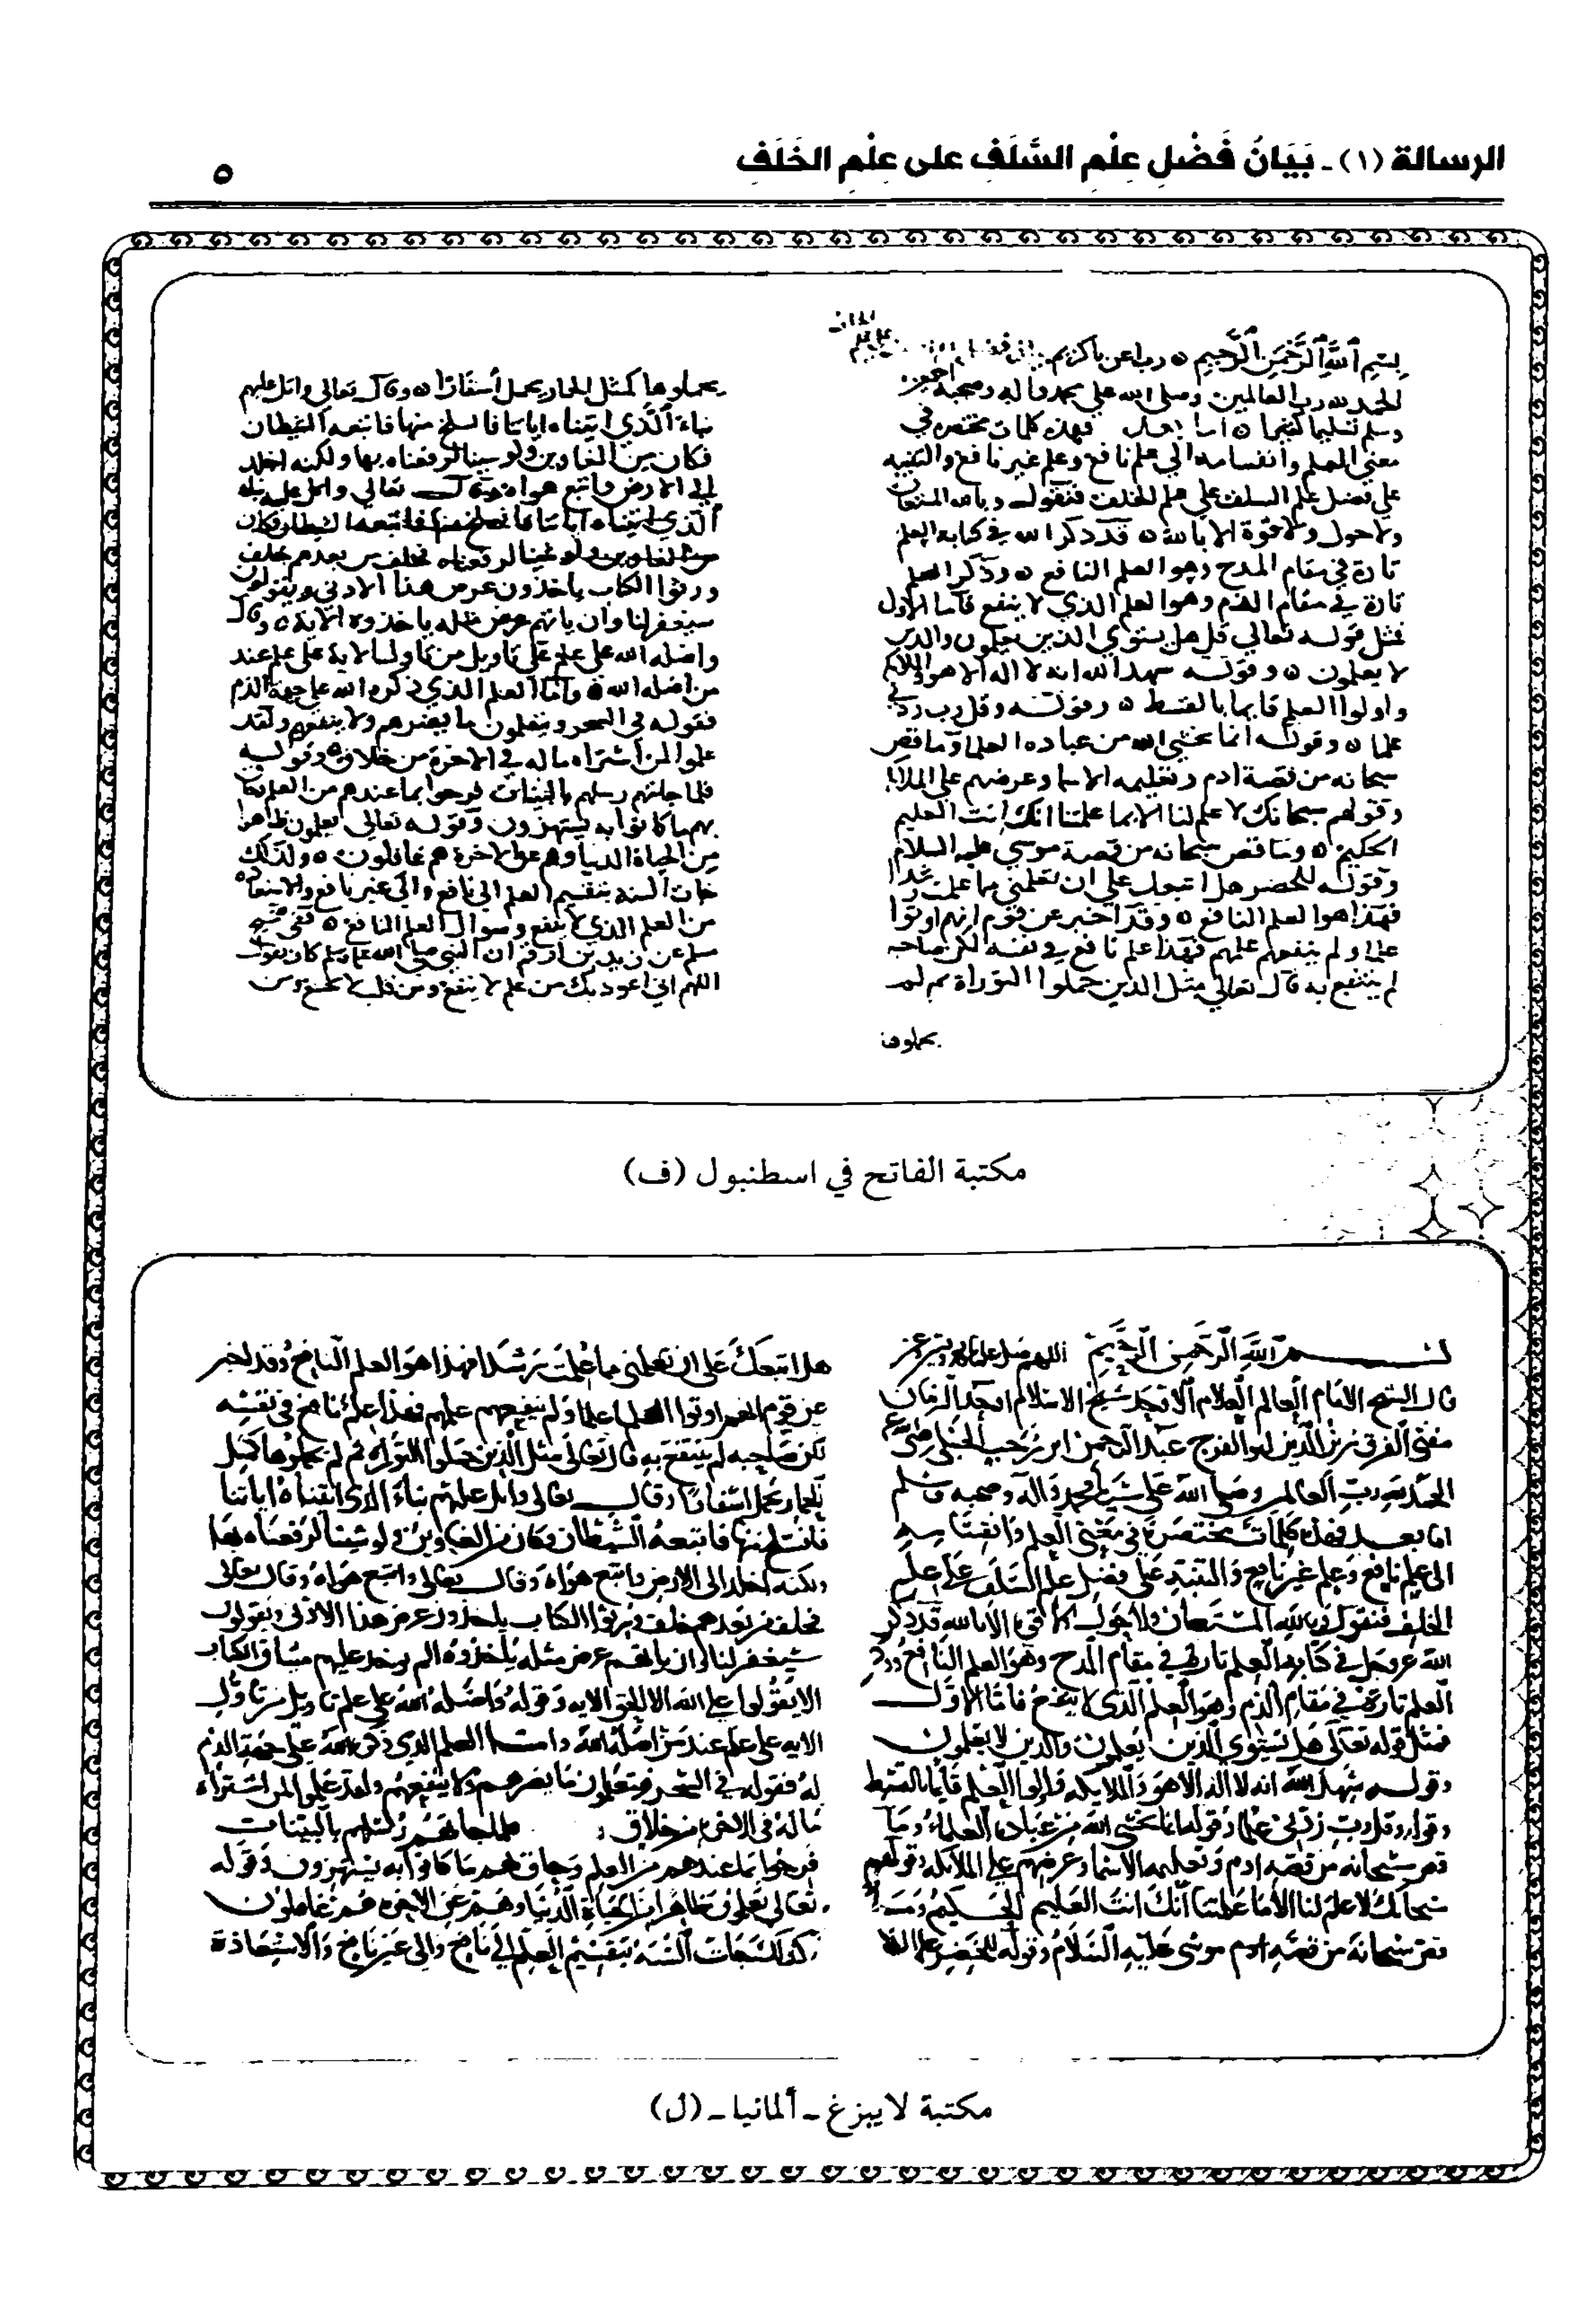 الرسالة (١) - بَيَانُ فَضْلِ عِلْمِ السَّلَفِ على عِلْمِ الخَلَفِ
٥
بسم الله الرحمن الرحيم ٥ رب اعن ياكريم
الحمد لله رب العالمين وصلى الله على محمد واله وصحبه اجمعين
وسلم تسليما كثيرا ٥ اما بعد فهذه كلمات مختصره في
معنى العلم وانقسامه الي علم نافع وعلم غير نافع والتنبيه
علي فضل علم السلف علي علم الخلف فنقول وبالله المستعان
ولاحول ولا قوة الا بالله ٥ قد ذكر الله في كتابه العلم
تارة في مقام المدح وهو العلم النافع ٥ وذكر العلم
تارة في مقام الذم وهو العلم الذي لا ينفع فاما الاول
فمثل قوله تعالي قل هل يستوي الذين يعلمون والذين
لا يعلمون ٥ وقوله شهد الله انه لا اله الا هو والملائكة
واولوا العلم قايما بالقسط ٥ وقوله وقل رب زدني
علما ٥ وقوله انما يخشى الله من عباده العلما وما قص
سبحانه من قصة ادم وتعليمه الاسما وعرضهم علي الملائكة
وقولهم سبحانك لا علم لنا الا بما علمتنا انك انت العليم
الحكيم ٥ وما قص سبحانه من قصة موسي عليه السلام
وقوله للخضر هل اتبعك علي ان تعلمني مما علمت رشدا
فهذا هو العلم النافع ٥ وقد اخبر عن قوم انهم اوتوا
علما ولم ينفعهم علمهم فهذا علم نافع في نفسه لكن صاحبه
لم ينتفع به قال تعالي مثل الذين حملوا التوراة ثم لم
يحملوها
يحملوها كمثل الحمار يحمل أسفارا ٥ وقال تعالي واتل عليهم
نباء الذي اتيناه اياتنا فانسلخ منها فاتبعه الشيطان
فكان من الغاوين ولو شينا لرفعناه بها ولكنه اخلد
إلي الارض واتبع هواه وقال تعالي واتل عليهم نباء
الذي اتيناه آياتنا فانسلخ منها فاتبعه الشيطان فكان
من الغاوين ولو شينا لرفعناه فخلف من بعدهم خلف
ورثوا الكتاب ياخذون عرض هذا الادني ويقولون
سيغفر لنا وان ياتهم عرض مثله ياخذوه الاية ٥ وقال
واضله الله علي علم علي تاويل من تاول الاية علي علم عند
من اضله الله ٥ واما العلم الذي ذكره الله على جهة الذم
فقوله في السحر ويتعلمون ما يضرهم ولا ينفعهم ولقد
علموا لمن اشتراه ماله في الاخرة من خلاق ٥ وقوله
فلما جاتهم رسلهم بالبينات فرحوا بما عندهم من العلم وحاق
بهم ما كانوا به يستهزون وقوله تعالي يعلمون ظاهرا
من الحياة الدنيا وهم عن الاخرة هم غافلون ٥ ولذلك
جات السنة بتقسيم العلم الي نافع والي غير نافع والاستعاذة
من العلم الذي لا ينفع وسوال العلم النافع ٥ ففي صحيح
مسلم عن زيد بن ارقم ان النبي صلي الله عليه وسلم كان يقول
اللهم اني اعوذ بك من علم لا ينفع ومن قلب لا يخشع ومن
مكتبة الفاتح في اسطنبول (ف)
بسم الله الرحمن الرحيم اللهم صل على
قال الشيخ الامام العالم العلام الاوحد شيخ الاسلام اوحد الزمان
مفتى الفرق زين الدين ابو الفرج عبد الرحمن ابن رجب الحنبلي
الحمد لله رب العالمين وصلى الله على سيدنا محمد واله وصحبه وسلم
اما بعد فهذه كلمات مختصرة في معنى العلم وانقسامه
الى علم نافع وعلم غير نافع والتنبيه على فضل علم السلف على علم
الخلف فنقول وبالله المستعان ولا حول ولا قوة الا بالله قد ذكر
الله عز وجل في كتابه العلم تارة في مقام المدح وهو العلم النافع وذكر
العلم تارة في مقام الذم وهو العلم الذي لا ينفع فاما الاول
فمثل قوله تعالى هل يستوى الذين يعلمون والذين لا يعلمون
وقوله شهد الله انه لا اله الا هو والملايكه واولوا العلم قايما بالقسط
وقوله وقل رب زدني علما وقوله انما يخشى الله من عباده العلماء وما
قص سبحانه من قصه ادم وتعليمه الاسماء وعرضهم على الملائكه وقولهم
سبحانك لا علم لنا الا ما علمتنا انك انت العليم الحكيم وما
قص سبحانه من قصه ادم موسى عليه السلام وقوله للخضر عليه السلام
هل اتبعك على ان تعلمني مما علمت رشدا فهذا هو العلم النافع وقد اخبر
عن قوم انهم اوتوا العلم علما ولم ينفعهم علمهم فهذا علم نافع في نفسه
لكن صاحبه لم ينتفع به قال تعالى مثل الذين حملوا التوراه ثم لم يحملوها كمثل
الحمار يحمل اسفارا وقال تعالى واتل عليهم نباء الذي اتيناه اياتنا
فانسلخ منها فاتبعه الشيطان فكان من الغاوين ولو شينا لرفعناه بها
ولكنه اخلد الى الارض واتبع هواه وقال تعالى واتبع هواه وقال تعالى
فخلف من بعدهم خلف ورثوا الكتاب ياخذون عرض هذا الادنى ويقولون
سيغفر لنا وان ياتهم عرض مثله ياخذوه الم يوخذ عليهم ميثاق الكتاب
الا يقولوا على الله الا الحق الايه وقوله واضله الله على علم تاويل من تاول
الايه على علم عند من اضله الله واما العلم الذي ذكره الله على جهة الذم
له فقوله في السحر فيتعلمون ما يضرهم ولا ينفعهم ولقد علموا لمن اشتراه
ماله في الاخرة من خلاق فلما جاتهم رسلهم بالبينات
فرحوا بما عندهم من العلم وحاق بهم ما كانوا به يستهزون وقوله
تعالى يعلمون ظاهرا من الحياة الدنيا وهم عن الاخره هم غافلون
ولذلك جات السنه بتقسيم العلم الى نافع والى غير نافع والاستعاذة
مكتبة لايبزغ - ألمانيا - (ل)